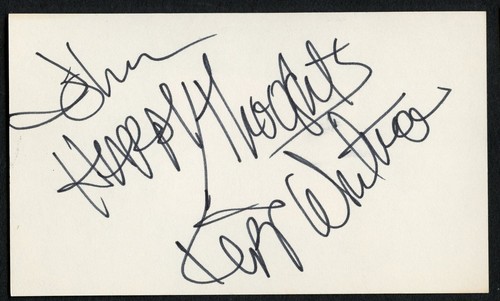 John
Happy Thoughts
Kerr Whitman